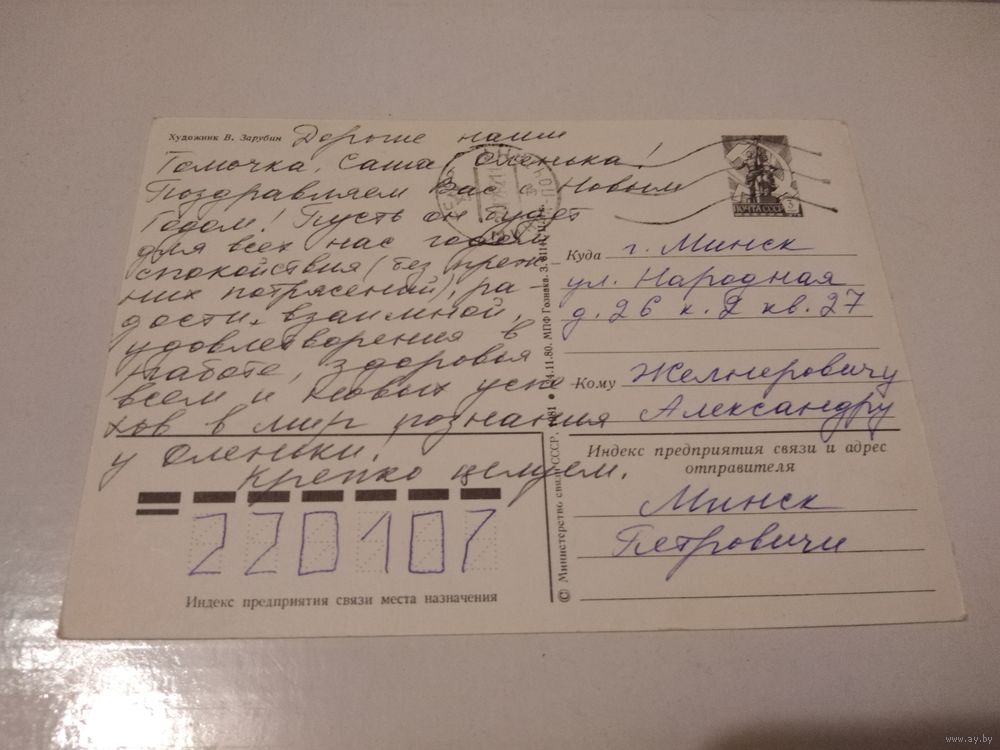 Художник В. Зарубин
Дорогие наши
Томочка, Саша, Оленька!
Поздравляем Вас с Новым
Годом! Пусть он будет
для всех нас годом
спокойствия (без преж-
них потрясений), ра-
дости, взаимной,
удовлетворения в
работе, здоровья
всем и новых успе
хов в мир познания
у Оленьки.
Крепко целуем.
ПОЧТА СССР 3
Куда г. Минск
ул. Народная
д. 26 к. 2 кв. 27
Кому Желнеровичу
Александру
Индекс предприятия связи и адрес
отправителя
Минск
Петровичи
220107
Индекс предприятия связи места назначения
© Министерство связи СССР. 1981 • 24.11.80. МПФ Гознака. З.
www.ay.by